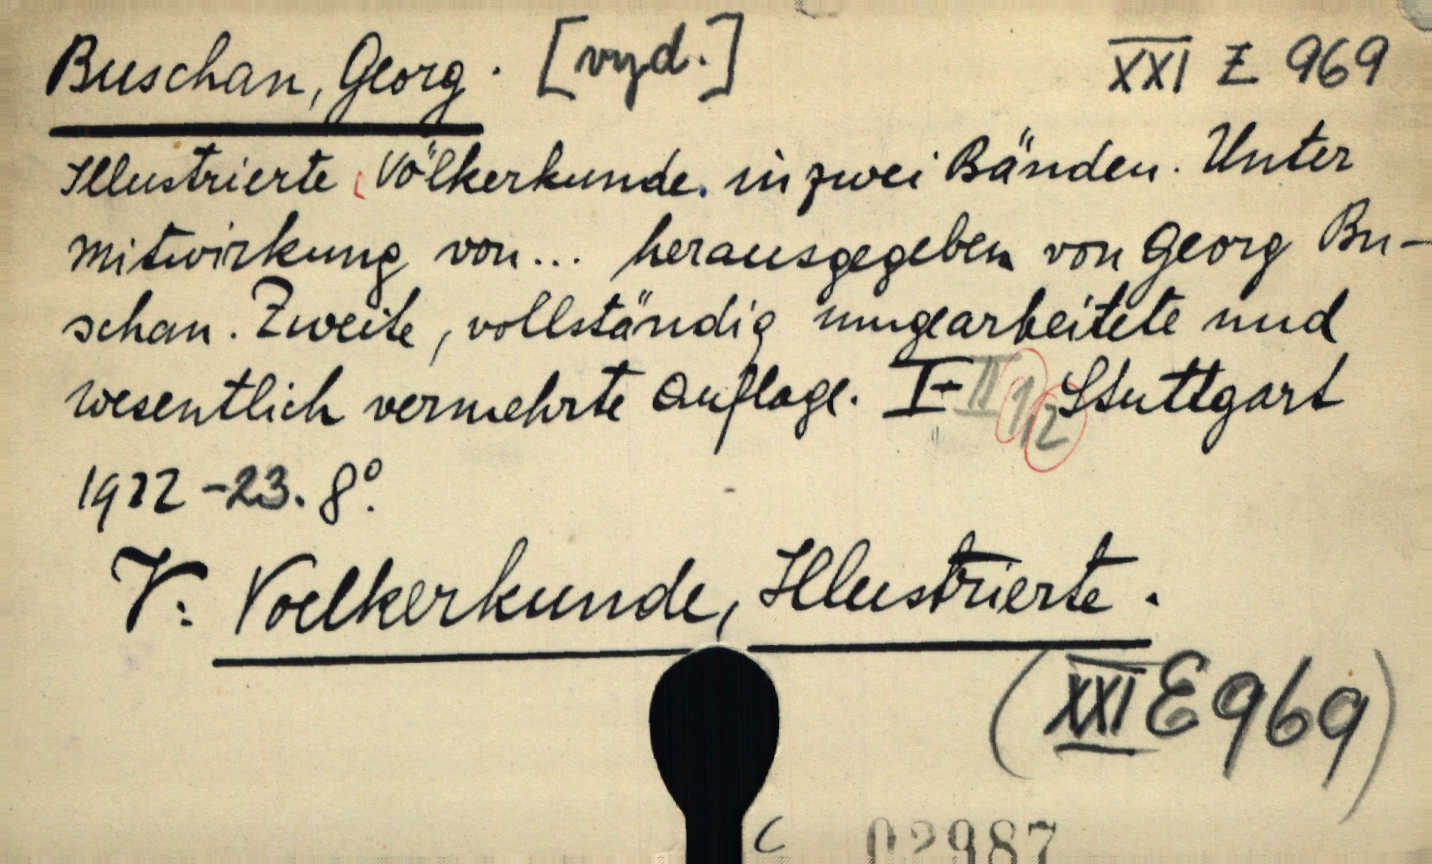 Buschan, Georg. [vyd.] XXI Z 969
Illustrierte Völkerkunde. in zwei Bänden. Unter
Mitwirkung von... herausgegeben von Georg Bu-
schan. Zweite, vollständig umgearbeitete und
wesentlich vermehrte Auflage. I-II 1,2 Stuttgart
1922-23. 8°.
V: Voelkerkunde, Illustrierte.
(XXI E 969)
C 02987